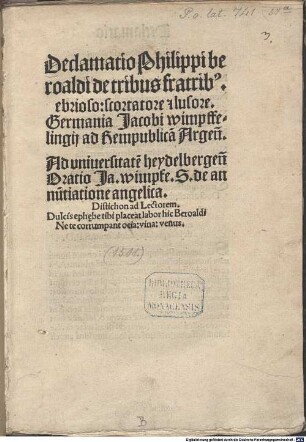 P. o. lat. 741
3.
Declamatio Philippi be
roaldi de tribus fratribꝰ.
ebrioso: scortatore ⁊ lusore.
Germania Jacobi wimpffe-
lingij ad Rempublicā Argeñ.
Ad universitatē heydelbergeñ
Oratio Ja. wimpfe. S. de an
nūtiatione angelica.
Distichon ad Lectorem.
Dulcis ephebe tibi placeat labor hic Beroaldi
Ne te corrumpant ocia; vina; venus.
(1501)
BIBLIOTHECA
REGIA
MONACENSIS
B